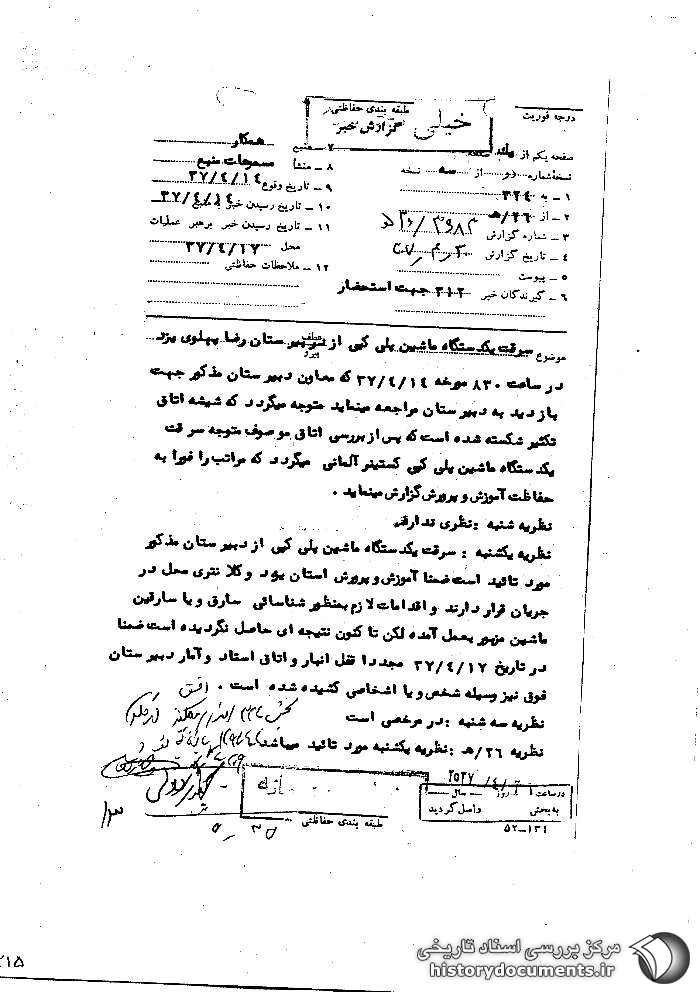 درجه فوریت
طبقه بندی حفاظتی
خیلی
گزارش خبر
صفحه یکم از یک صفحه
نسخه شماره دو از سه نسخه
۱ ـ به ۳۲۴
۲ ـ از ۲۶/هـ
۳ ـ شماره گزارش
۴ ـ تاریخ گزارش
۵ ـ پیوست
۶ ـ گیرندگان خبر ۳۱۲ جهت استحضار
۷ ـ منبع همکار
۸ ـ منشا مسموعات منبع
۹ ـ تاریخ وقوع ۳۷/۴/۱۴
۱۰ ـ تاریخ رسیدن خبر به منبع ۳۷/۴/۱۴
۱۱ ـ تاریخ رسیدن خبر برهبر عملیات
محل ۳۷/۴/۱۷
۱۲ ـ ملاحظات حفاظتی
موضوع سرقت یکدستگاه ماشین پلی کپی از دبیرستان رضا پهلوی یزد
در ساعت ۸۳۰ مورخه ۳۷/۴/۱۴ که معاون دبیرستان مذکور جهت
بازدید به دبیرستان مراجعه مینماید متوجه میگردد که شیشه اتاق
تکثیر شکسته شده است که پس از بررسی اتاق موصوف متوجه سرقت
یکدستگاه ماشین پلی کپی گستتنر آلمانی میگردد که مراتب را فورا به
حفاظت آموزش و پرورش گزارش مینماید .
نظریه شنبه : نظری ندارد
نظریه یکشنبه : سرقت یکدستگاه ماشین پلی کپی از دبیرستان مذکور
مورد تائید است ضمنا آموزش و پرورش استان یزد و کلانتری محل در
جریان قرار دارند و اقدامات لازم بمنظور شناسائی سارق و یا سارقین
ماشین مزبور بعمل آمده لکن تا کنون نتیجه ای حاصل نگردیده است ضمنا
در تاریخ ۳۷/۴/۱۷ مجددا قفل انبار و اتاق اسناد و آمار دبیرستان
فوق نیز وسیله شخص و یا اشخاصی کشیده شده است .
نظریه سه شنبه : در مرخصی است
نظریه ۲۶/هـ : نظریه یکشنبه مورد تائید میباشد
در ساعت روز سال
به بخش واصل گردید
۵۲-۱۳۱
طبقه بندی حفاظتی
۲۱۵
مرکز بررسی اسناد تاریخی
historydocuments.ir